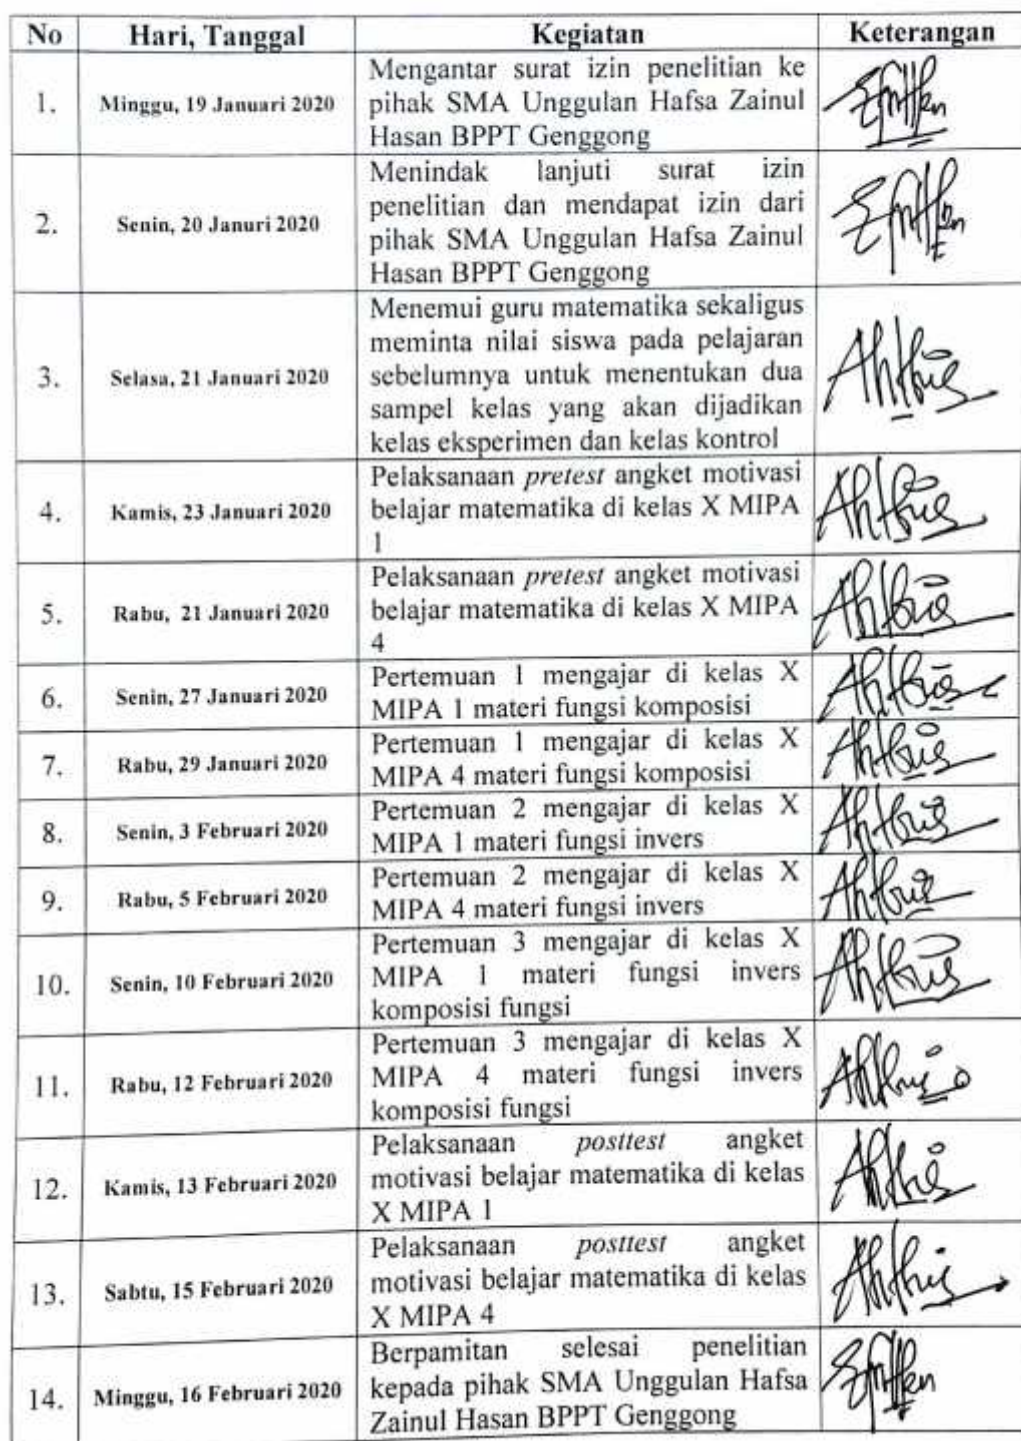 No Hari, Tanggal Kegiatan Keterangan
1. Minggu, 19 Januari 2020 Mengantar surat izin penelitian ke
pihak SMA Unggulan Hafsa Zainul
Hasan BPPT Genggong
2. Senin, 20 Januri 2020 Menindak lanjuti surat izin
penelitian dan mendapat izin dari
pihak SMA Unggulan Hafsa Zainul
Hasan BPPT Genggong
3. Selasa, 21 Januari 2020 Menemui guru matematika sekaligus
meminta nilai siswa pada pelajaran
sebelumnya untuk menentukan dua
sampel kelas yang akan dijadikan
kelas eksperimen dan kelas kontrol
4. Kamis, 23 Januari 2020 Pelaksanaan pretest angket motivasi
belajar matematika di kelas X MIPA
1
5. Rabu, 21 Januari 2020 Pelaksanaan pretest angket motivasi
belajar matematika di kelas X MIPA
4
6. Senin, 27 Januari 2020 Pertemuan 1 mengajar di kelas X
MIPA 1 materi fungsi komposisi
7. Rabu, 29 Januari 2020 Pertemuan 1 mengajar di kelas X
MIPA 4 materi fungsi komposisi
8. Senin, 3 Februari 2020 Pertemuan 2 mengajar di kelas X
MIPA 1 materi fungsi invers
9. Rabu, 5 Februari 2020 Pertemuan 2 mengajar di kelas X
MIPA 4 materi fungsi invers
10. Senin, 10 Februari 2020 Pertemuan 3 mengajar di kelas X
MIPA 1 materi fungsi invers
komposisi fungsi
11. Rabu, 12 Februari 2020 Pertemuan 3 mengajar di kelas X
MIPA 4 materi fungsi invers
komposisi fungsi
12. Kamis, 13 Februari 2020 Pelaksanaan posttest angket
motivasi belajar matematika di kelas
X MIPA 1
13. Sabtu, 15 Februari 2020 Pelaksanaan posttest angket
motivasi belajar matematika di kelas
X MIPA 4
14. Minggu, 16 Februari 2020 Berpamitan selesai penelitian
kepada pihak SMA Unggulan Hafsa
Zainul Hasan BPPT Genggong